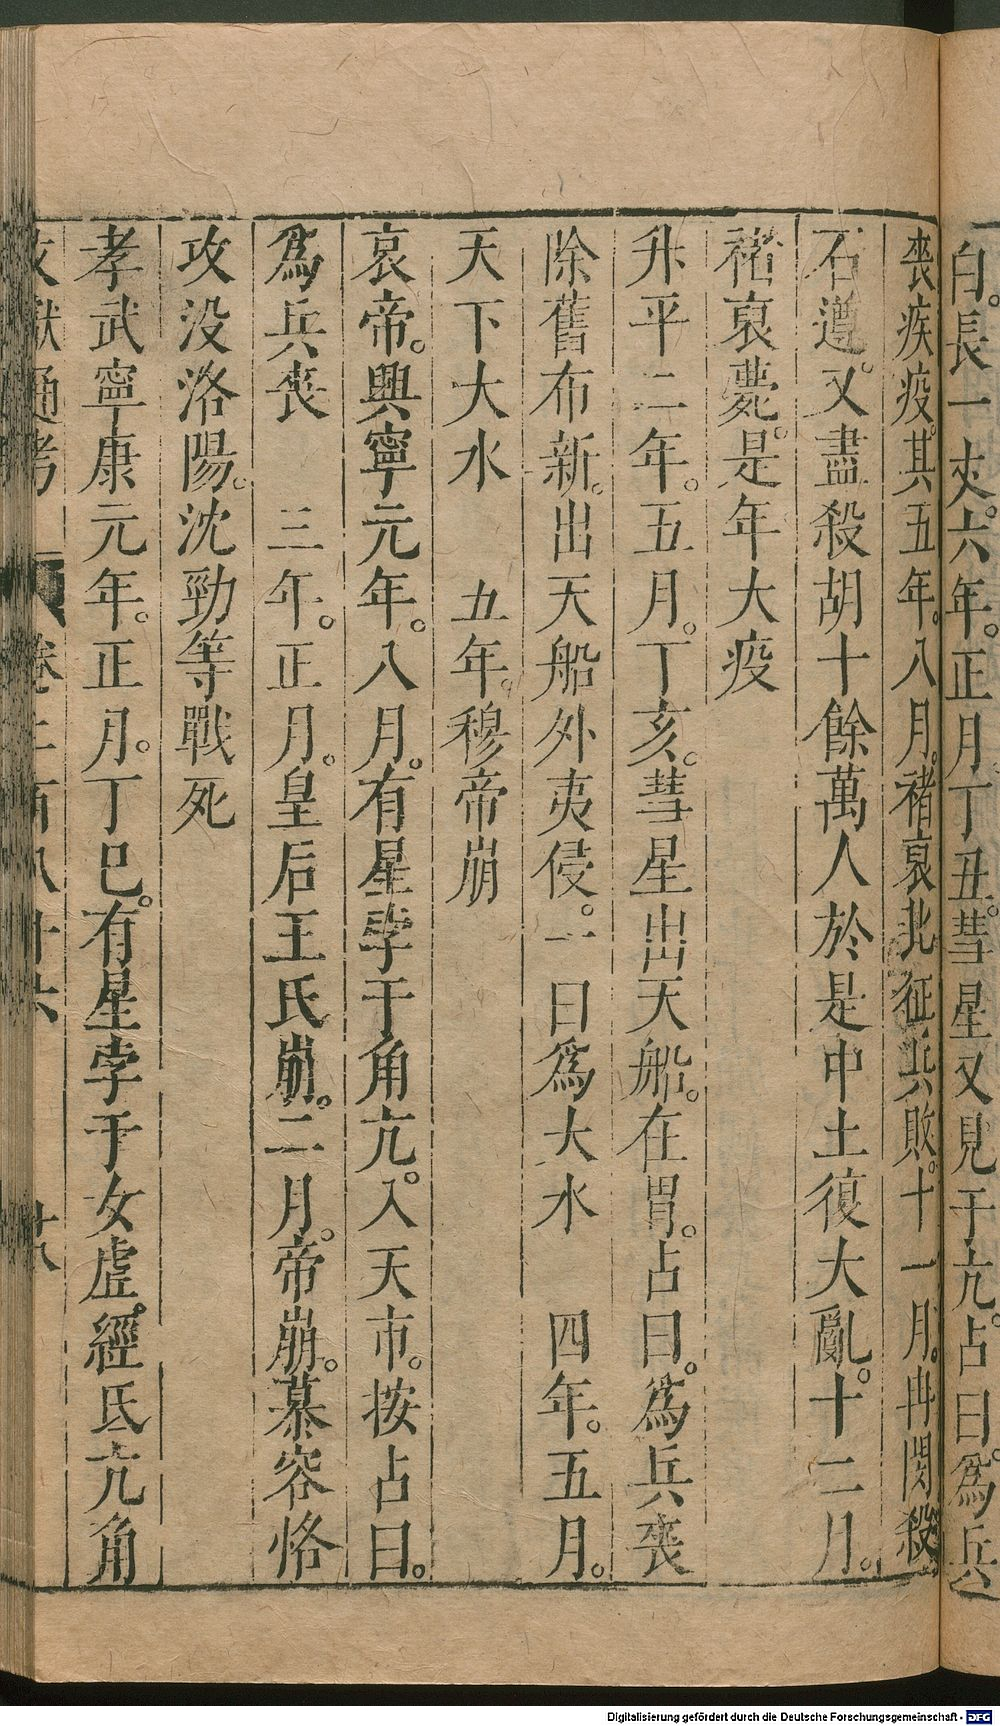 白。長一丈。六年。正月丁丑。彗星又見于亢。占曰。爲兵
喪疾疫。其五年。八月。褚裒北征兵敗。十一月。冉閔殺
石遵。又盡殺胡十餘萬人於是中土復大亂。十二月。
褚裒薨。是年大疫
升平二年。五月。丁亥。彗星出天船。在胃。占曰。爲兵喪
除舊布新。出天船外夷侵。一曰爲大水　四年。五月。
天下大水　五年。穆帝崩
哀帝。興寧元年。八月。有星孛于角亢。入天市。按占曰。
爲兵喪　三年。正月。皇后王氏崩。二月。帝崩。慕容恪
攻没洛陽。沈勁等戰死
孝武寧康元年。正月。丁巳。有星孛于女虛。經氐亢角
文獻通考　卷二百八十六　廿八
Digitalisierung gefördert durch die Deutsche Forschungsgemeinschaft - DFG